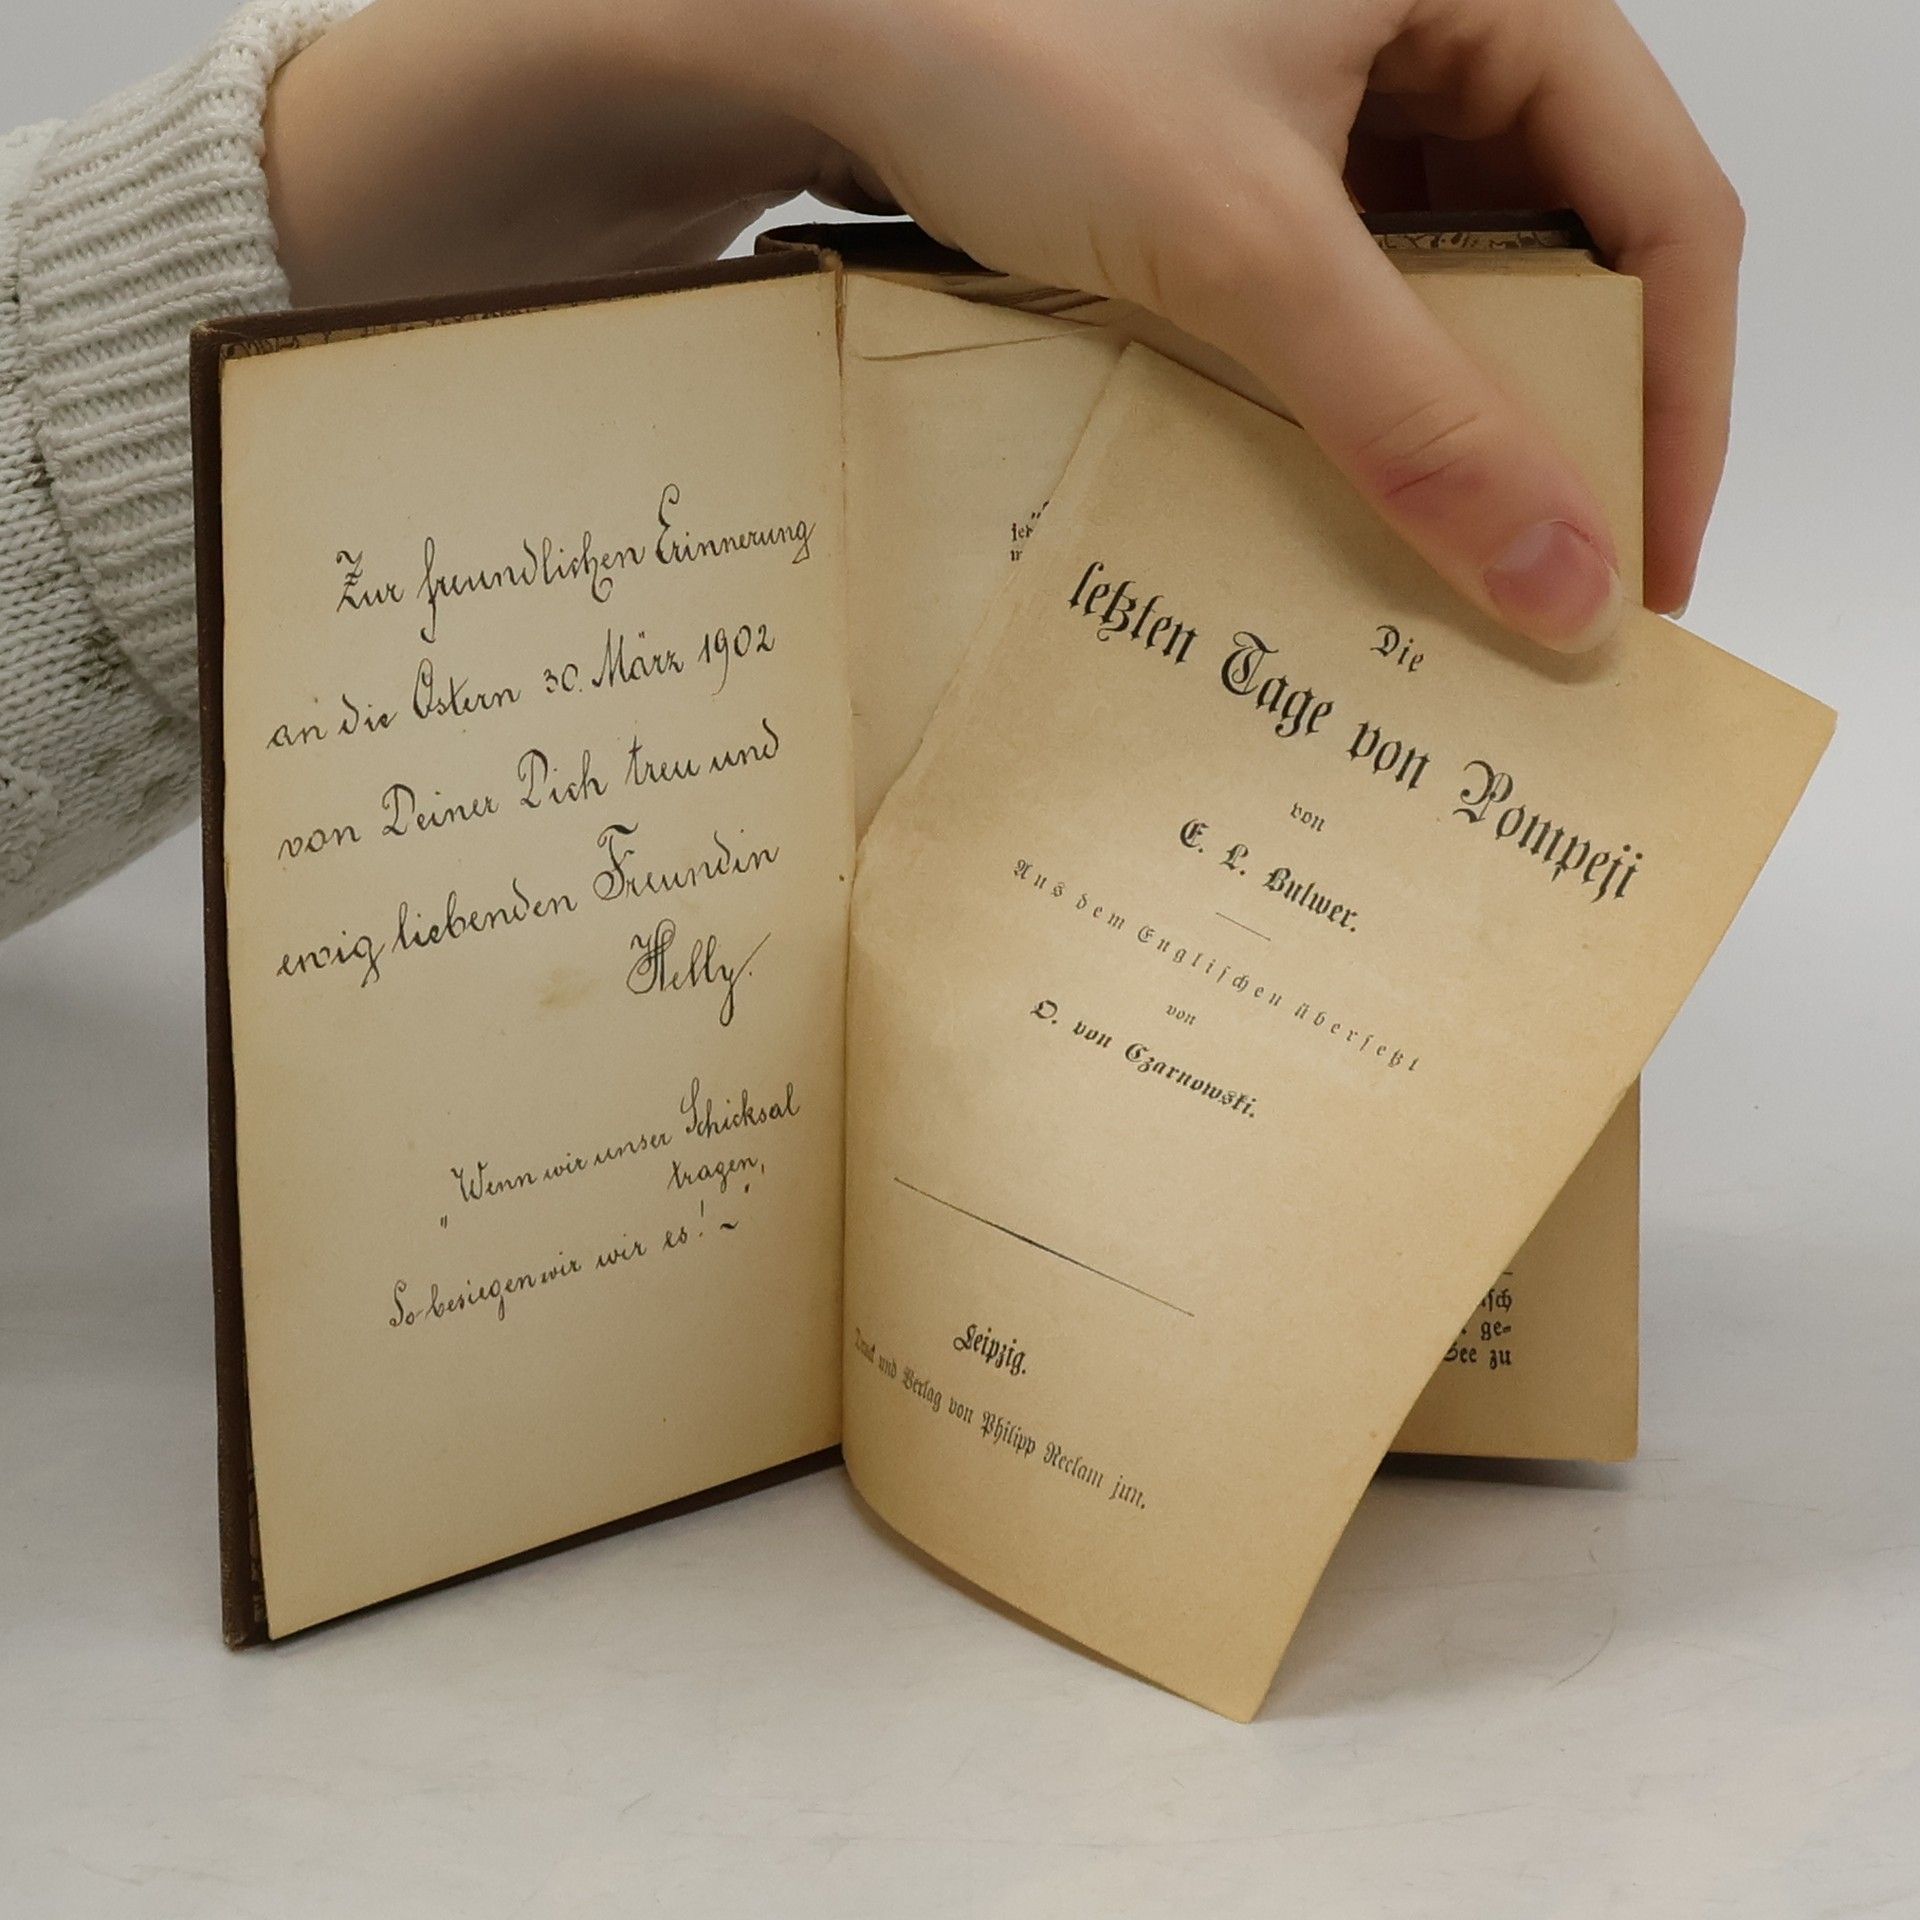 Zur freundlichen Erinnerung
an die Ostern 30. März 1902
von Deiner Dich treu und
ewig liebenden Freundin
Nelly.
„Wenn wir unser Schicksal
tragen,
So besiegen wir wir es! ~"
Die
letzten Tage von Pompeji
von
E. L. Bulwer.
Aus dem Englischen übersetzt
von
O. von Czarnowski.
Leipzig.
Druck und Verlag von Philipp Reclam jun.
ge-
See zu